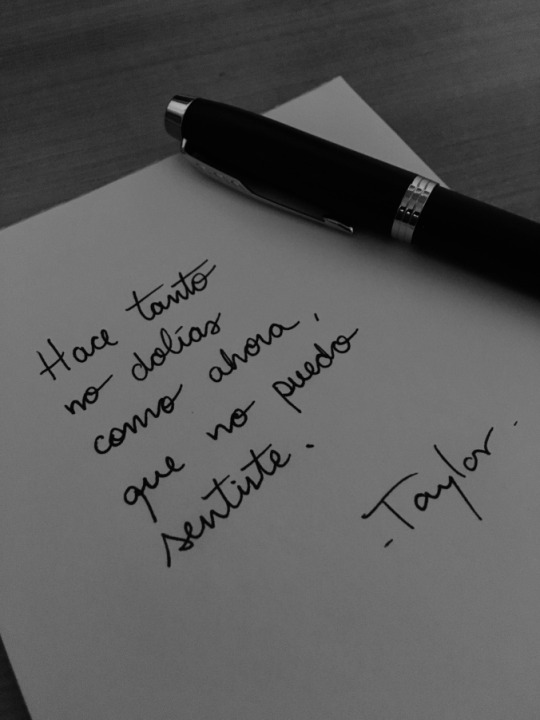 Hace tanto
no dolías
como ahora,
que no puedo
sentirte.
-Taylor.